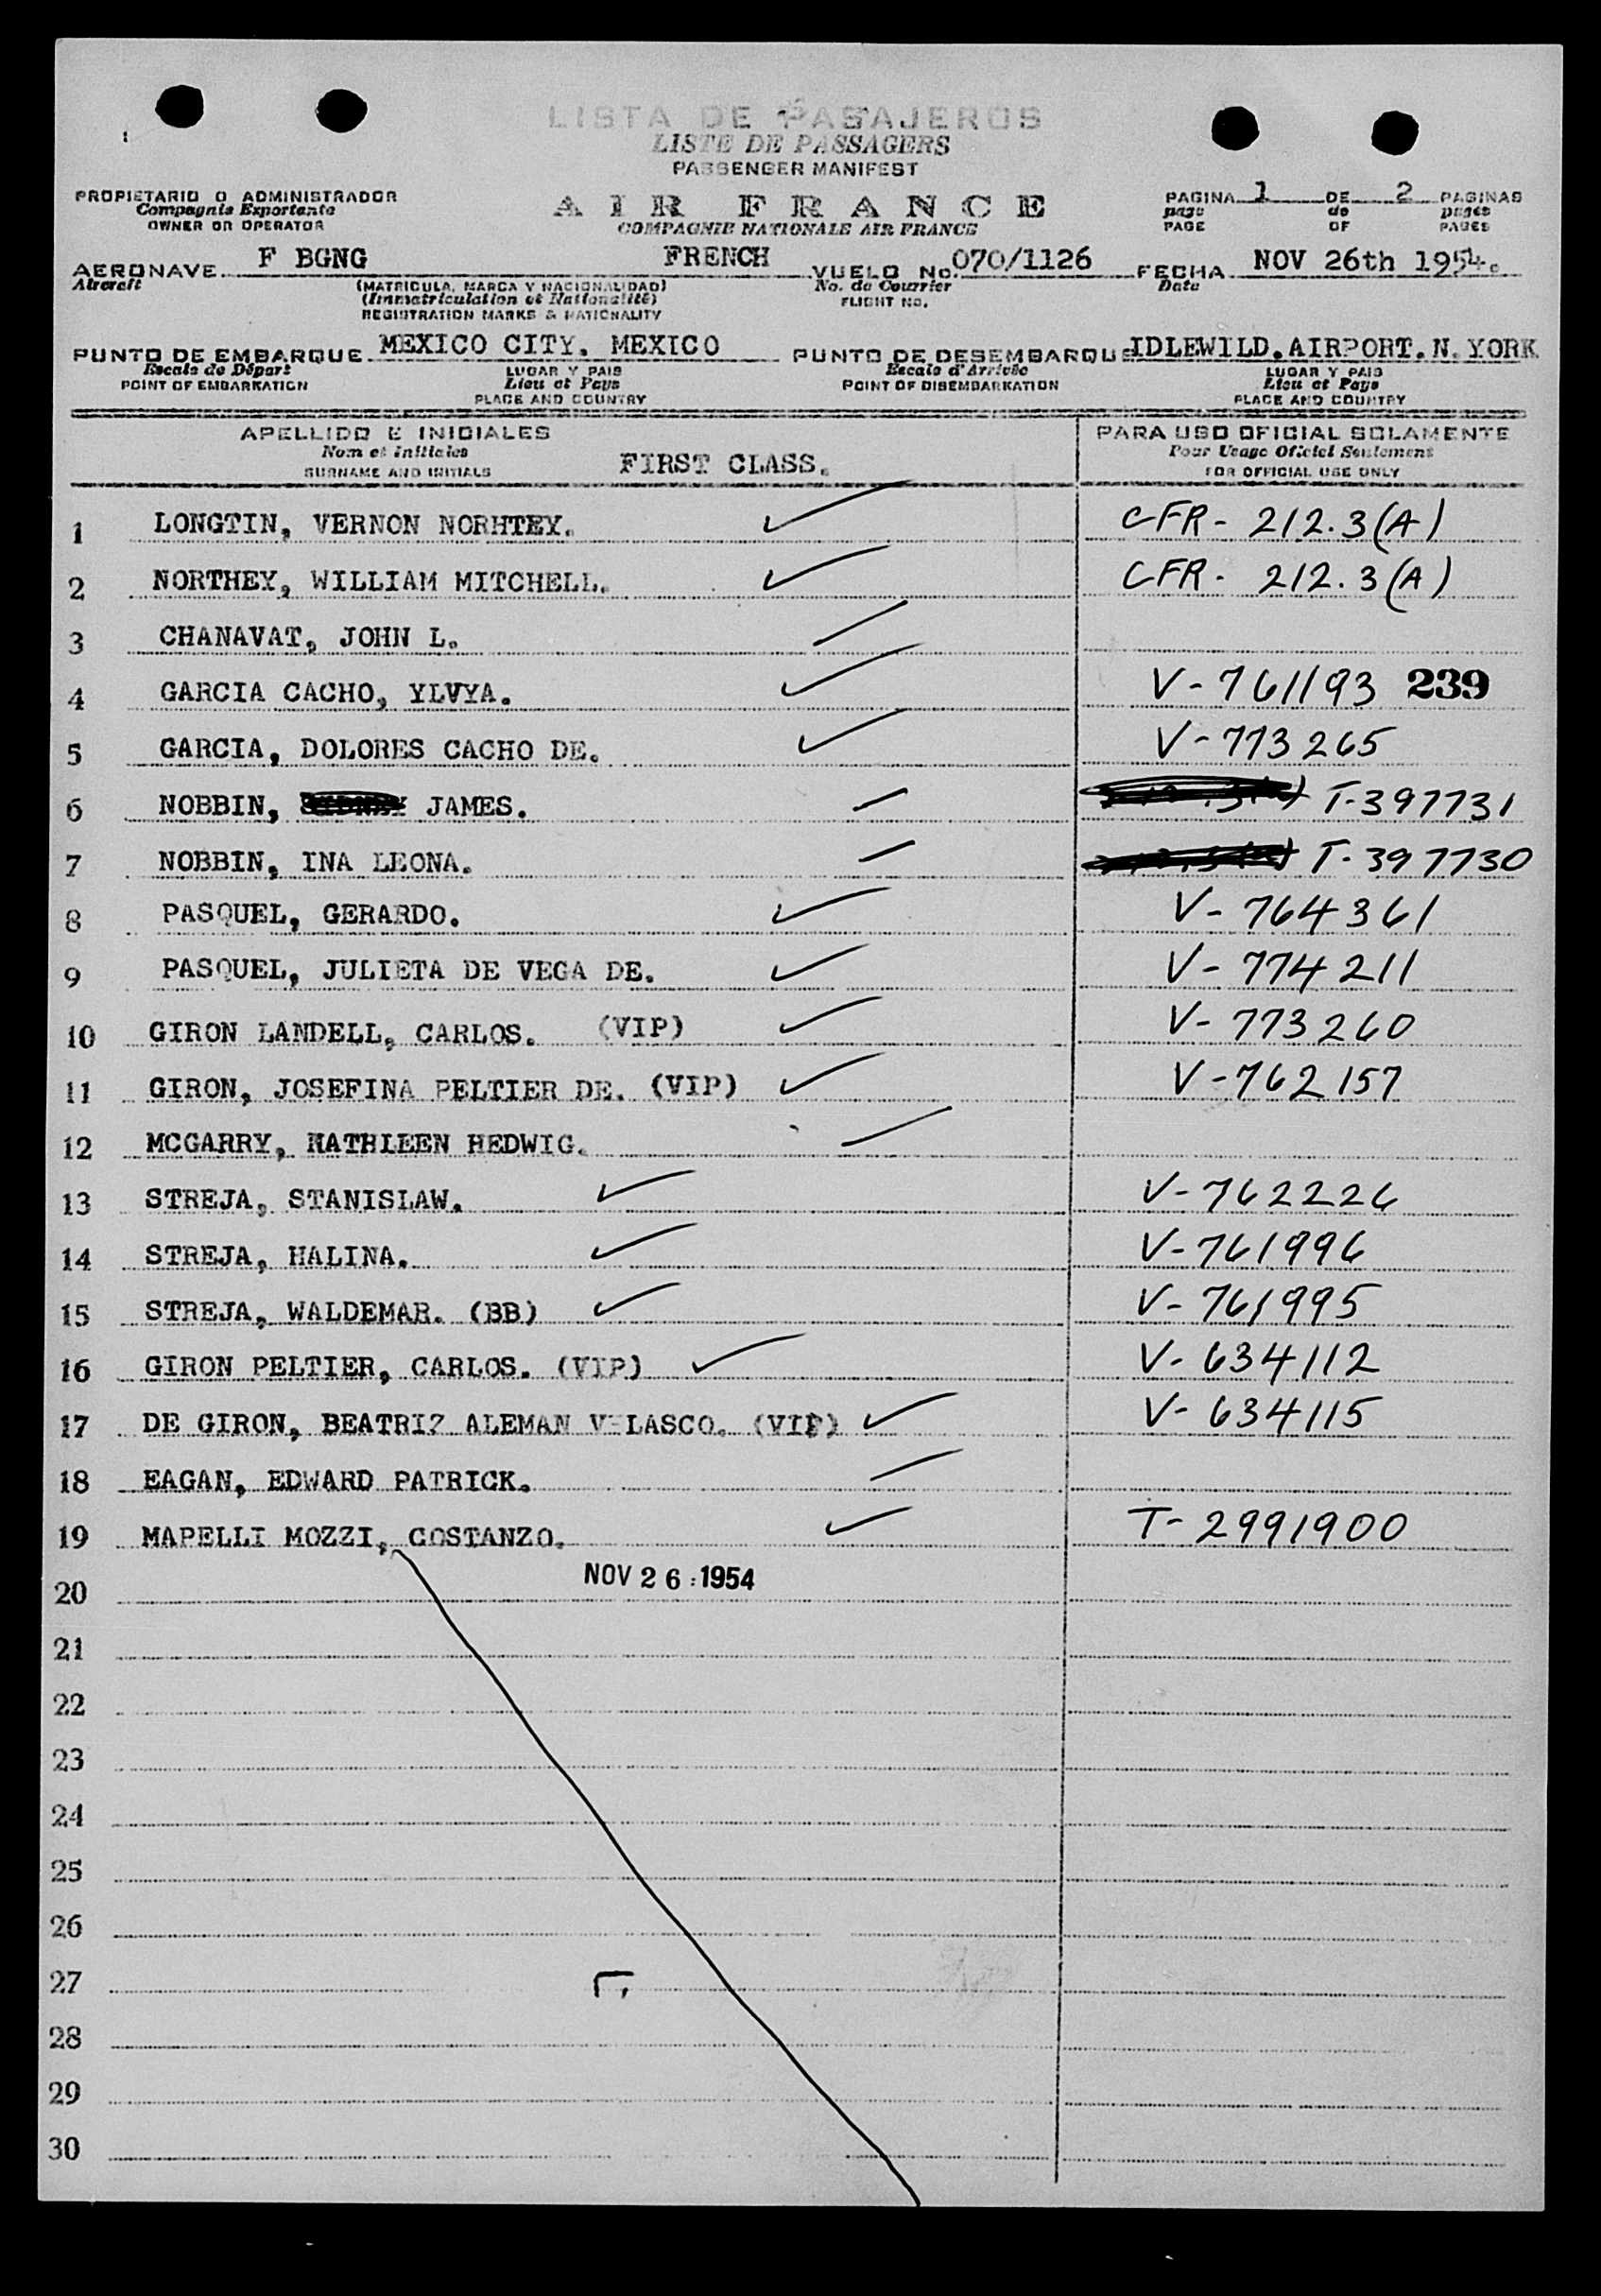 LISTA DE PASAJEROS
LISTE DE PASSAGERS
PASSENGER MANIFEST
PROPIETARIO O ADMINISTRADOR
Compagnie Exportante
OWNER OR OPERATOR
AIR FRANCE
COMPAGNIE NATIONALE AIR FRANCE
PAGINA 1 DE 2 PAGINAS
page de pages
PAGE OF PAGES
AERONAVE F BGNG FRENCH VUELO No. 070/1126 FECHA NOV 26th 1954.
Aircraft (MATRICULA, MARCA Y NACIONALIDAD) No. de Courrier Date
(Immatriculation et Nationalité) FLIGHT NO.
REGISTRATION MARKS & NATIONALITY
PUNTO DE EMBARQUE MEXICO CITY. MEXICO PUNTO DE DESEMBARQUE IDLEWILD.AIRPORT.N.YORK
Escale de Départ LUGAR Y PAIS Escale d'Arrivée LUGAR Y PAIS
POINT OF EMBARKATION Lieu et Pays POINT OF DISEMBARKATION Lieu et Pays
PLACE AND COUNTRY PLACE AND COUNTRY
APELLIDO E INICIALES PARA USO OFICIAL SOLAMENTE
Nom et Initiales FIRST CLASS. Pour Usage Oficiel Seulement
SURNAME AND INITIALS FOR OFFICIAL USE ONLY
1 LONGTIN, VERNON NORHTEY. CFR- 212.3(A)
2 NORTHEY, WILLIAM MITCHELL. CFR- 212.3(A)
3 CHANAVAT, JOHN L.
4 GARCIA CACHO, YLVYA. V-761193 239
5 GARCIA, DOLORES CACHO DE. V-773265
6 NOBBIN, JAMES. T-397731
7 NOBBIN, INA LEONA. T-397730
8 PASQUEL, GERARDO. V-764361
9 PASQUEL, JULIETA DE VEGA DE. V-774211
10 GIRON LANDELL, CARLOS. (VIP) V-773260
11 GIRON, JOSEFINA PELTIER DE. (VIP) V-762157
12 MCGARRY, KATHLEEN HEDWIG.
13 STREJA, STANISLAW. V-762226
14 STREJA, HALINA. V-761996
15 STREJA, WALDEMAR. (BB) V-761995
16 GIRON PELTIER, CARLOS. (VIP) V-634112
17 DE GIRON, BEATRIZ ALEMAN VELASCO. (VIP) V-634115
18 EAGAN, EDWARD PATRICK.
19 MAPELLI MOZZI, COSTANZO. T-2991900
20 NOV 26 1954
21
22
23
24
25
26
27
28
29
30